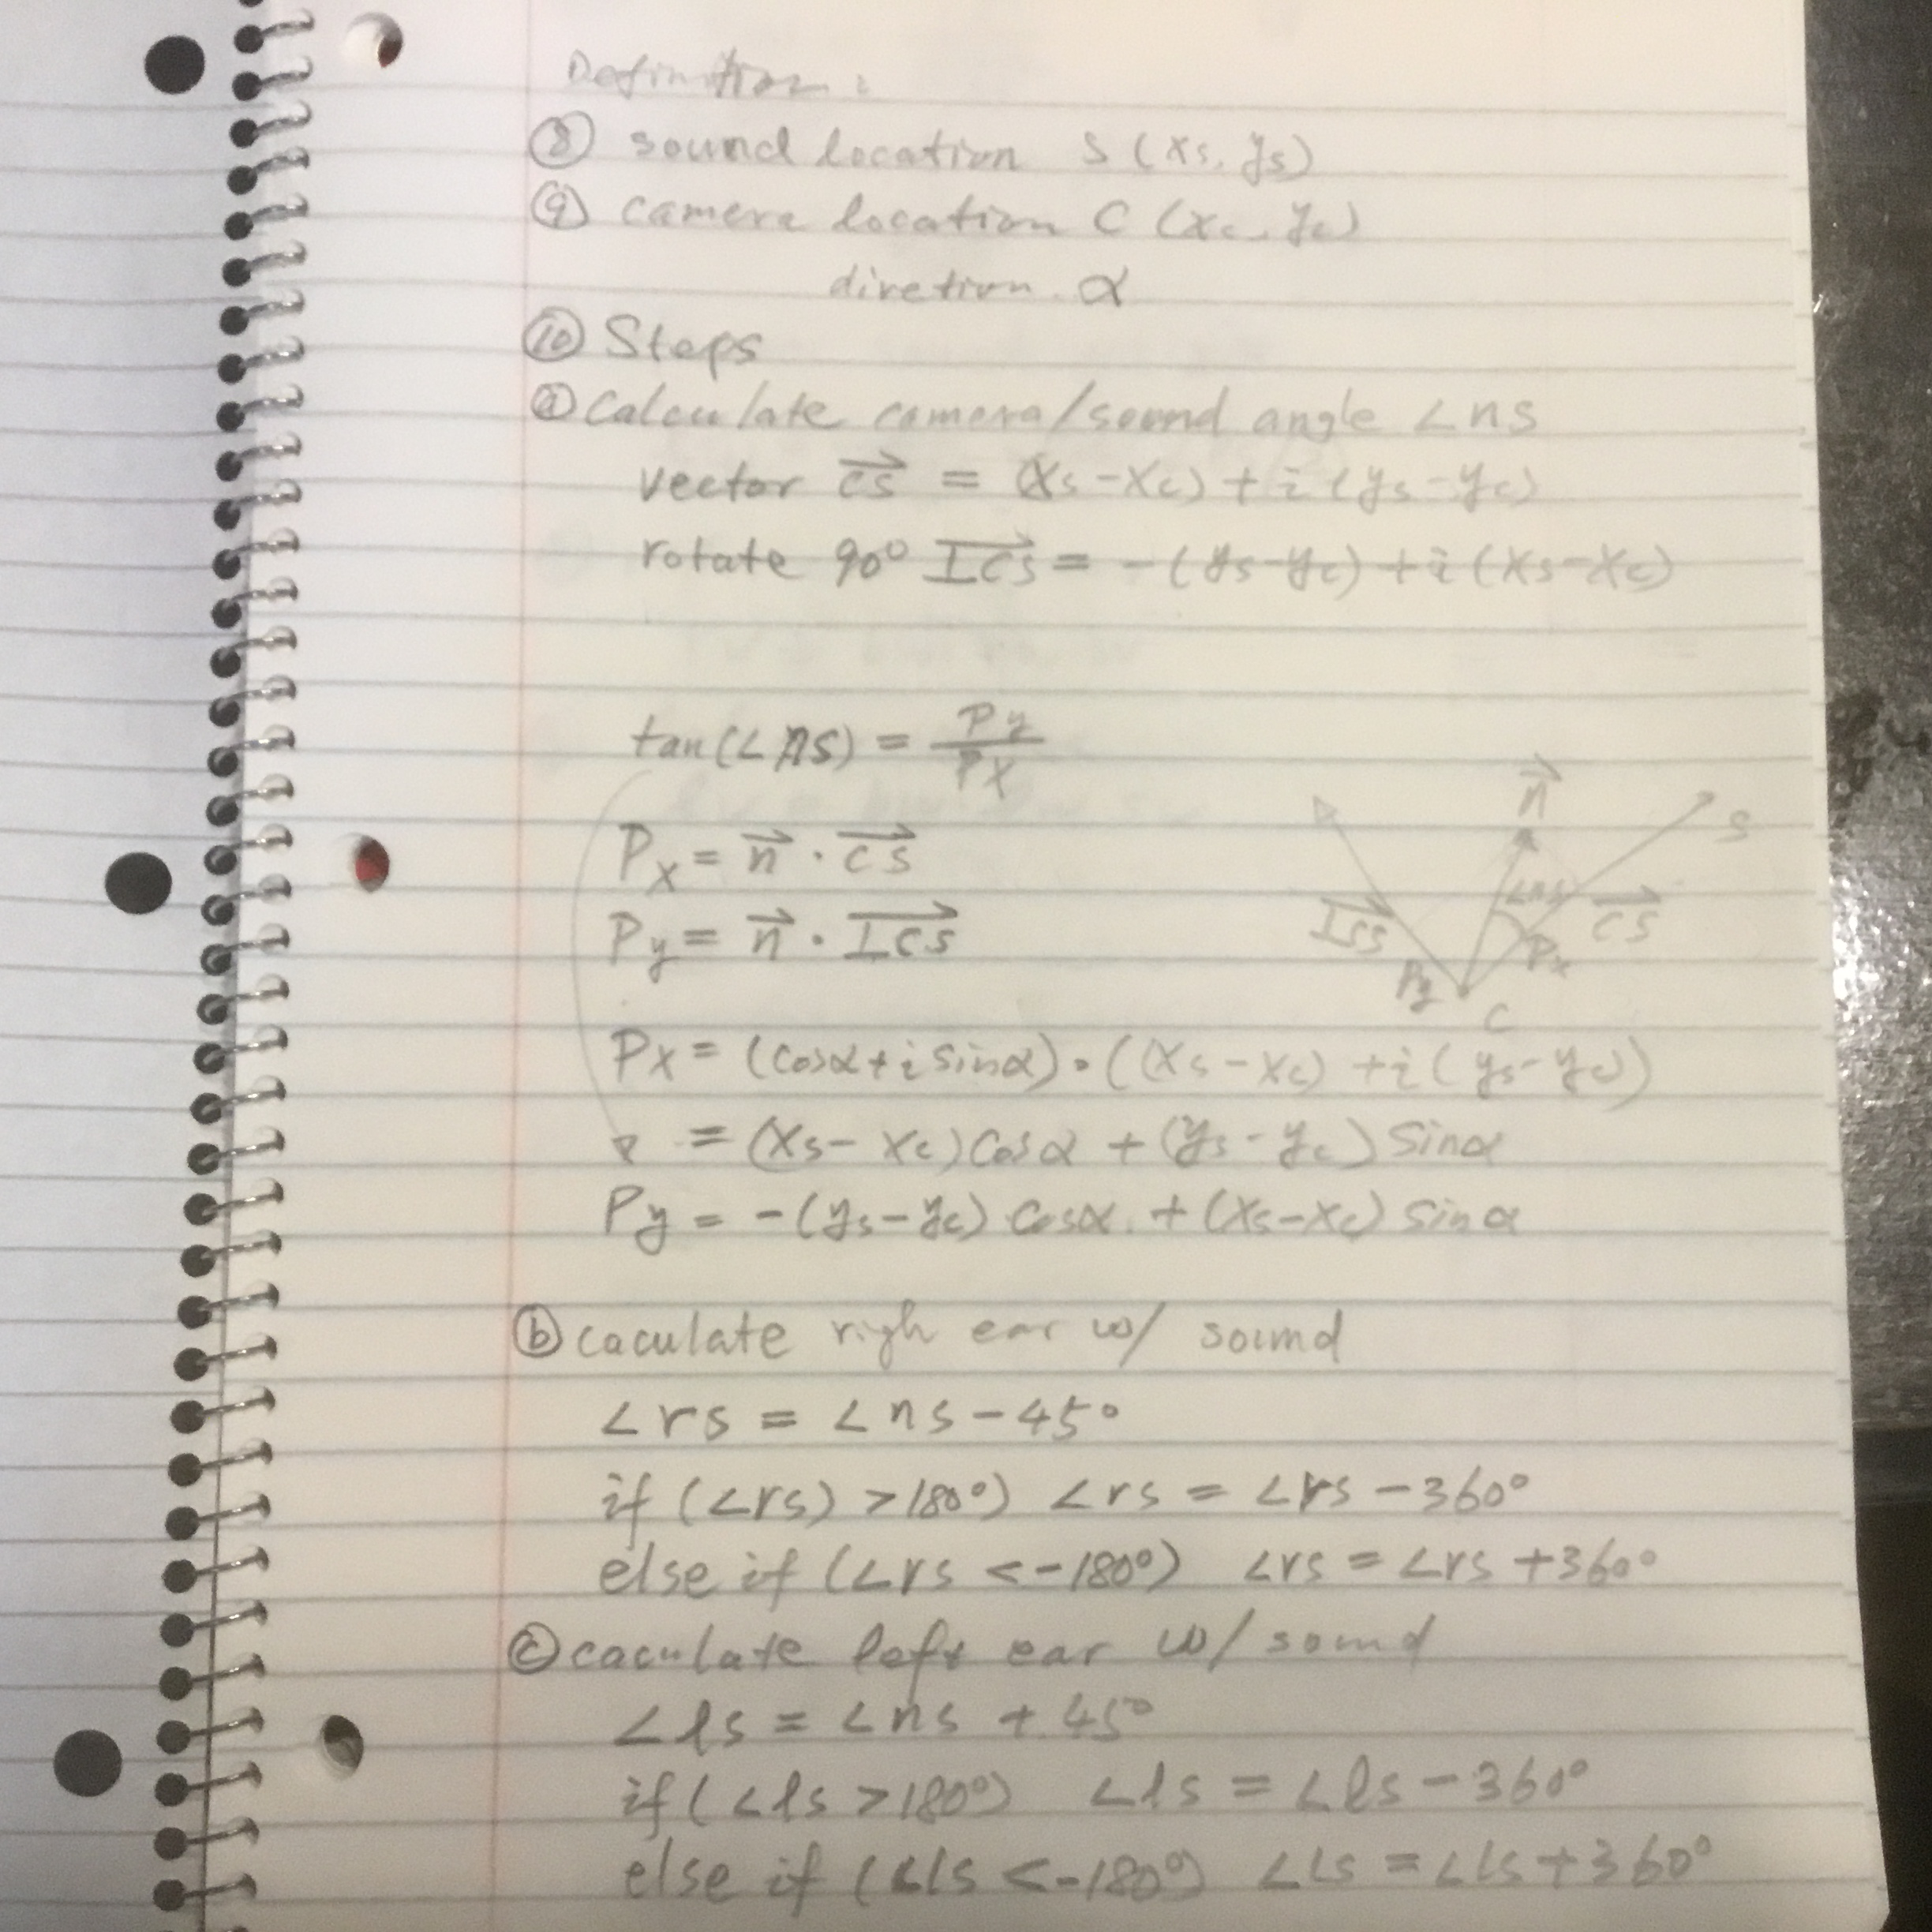 Definition:
⑧ sound location S (xs, ys)
⑨ camera location C (xc, yc)
diretion. α
⑩ Steps
ⓐ Calculate camera/sound angle ∠ns
vector →CS = (xs-xc) + i (ys-yc)
rotate 90° →ICS = -(ys-yc) + i (xs-xc)
tan(∠ns) = Py/Px
Px = →n · →CS
Py = →n · →ICS
→n
S
∠ns
→ICS
→CS
Py
Px
C
Px = (cosα + i sinα) · ((xs-xc) + i (ys-yc))
= (xs-xc) cosα + (ys-yc) sinα
Py = -(ys-yc) cosα. + (xs-xc) sinα
ⓑ caculate righ ear w/ sound
∠rs = ∠ns - 45°
if (∠rs) > 180°) ∠rs = ∠rs - 360°
else if (∠rs < -180°) ∠rs = ∠rs + 360°
ⓒ caculate left ear w/ sound
∠ls = ∠ns + 45°
if (∠ls > 180°) ∠ls = ∠ls - 360°
else if (∠ls < -180°) ∠ls = ∠ls + 360°